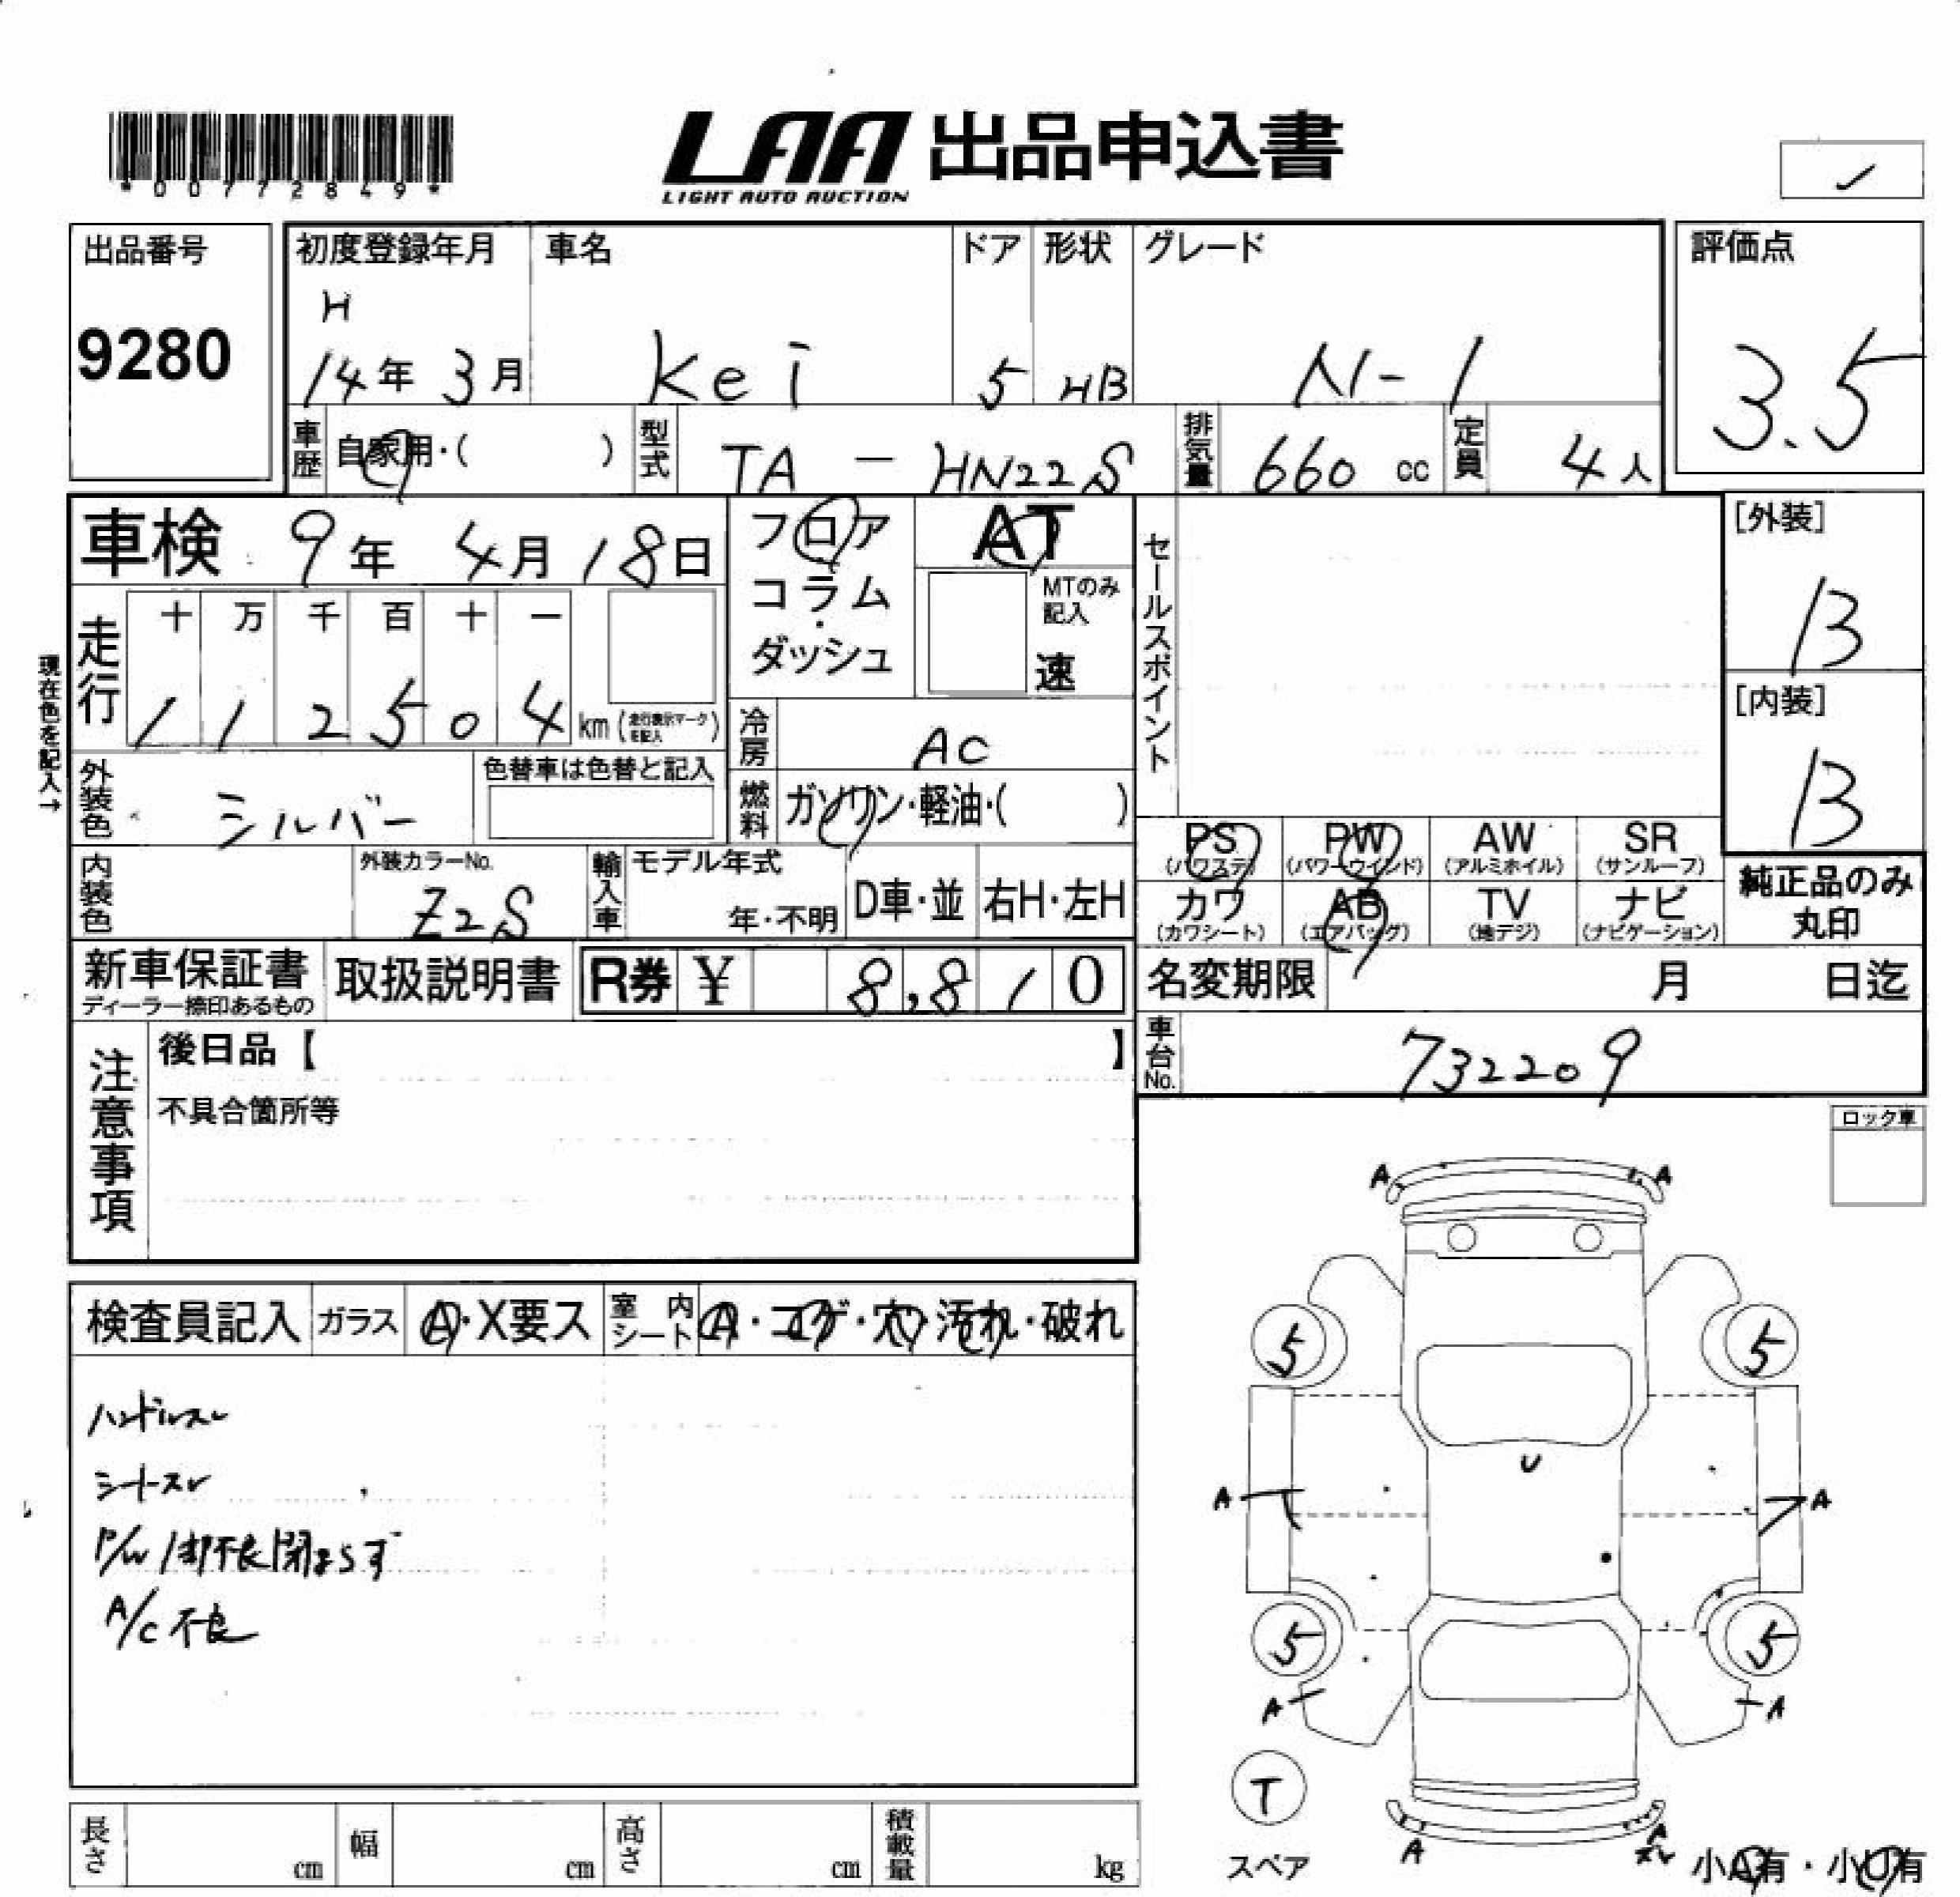 *00772849*
LAA 出品申込書
LIGHT AUTO AUCTION
出品番号
9280
初度登録年月
H
14年 3月
車名
Kei
ドア
5
形状
HB
グレード
N-1
評価点
3.5
車歴
自家用・( )
型式
TA - HN22S
排気量
660 cc
定員
4人
車検 9年 4月 18日
走行
十 万 千 百 十 一
1 1 2 5 0 4 km (走行表示マークを記入)
現在色を記入→
外装色
シルバー
色替車は色替と記入
フロア
コラム
・
ダッシュ
AT
MTのみ
記入
速
冷房
AC
燃料
ガソリン・軽油・( )
セールスポイント
[外装]
B
[内装]
B
内装色
外装カラーNo.
Z2S
輸入車
モデル年式
年・不明
D車・並
右H・左H
PS
(パワステ)
PW
(パワーウインド)
AW
(アルミホイル)
SR
(サンルーフ)
カワ
(カワシート)
AB
(エアバッグ)
TV
(地デジ)
ナビ
(ナビゲーション)
純正品のみ
丸印
新車保証書
ディーラー捺印あるもの
取扱説明書
R券 ¥ 8,810
名変期限 月 日迄
車台No.
732209
注意事項
後日品【 】
不具合箇所等
ロック車
検査員記入
ガラス
A・X要ス
室内
シート
A・コゲ・穴・汚れ・破れ
ハンドルスレ
シートスレ
P/W 1部不良閉まらず
A/C 不良
A A
5 5
U
A A
5 5
A A
T
スペア
A A
小A有・小U有
長さ cm
幅 cm
高さ cm
積載量 kg